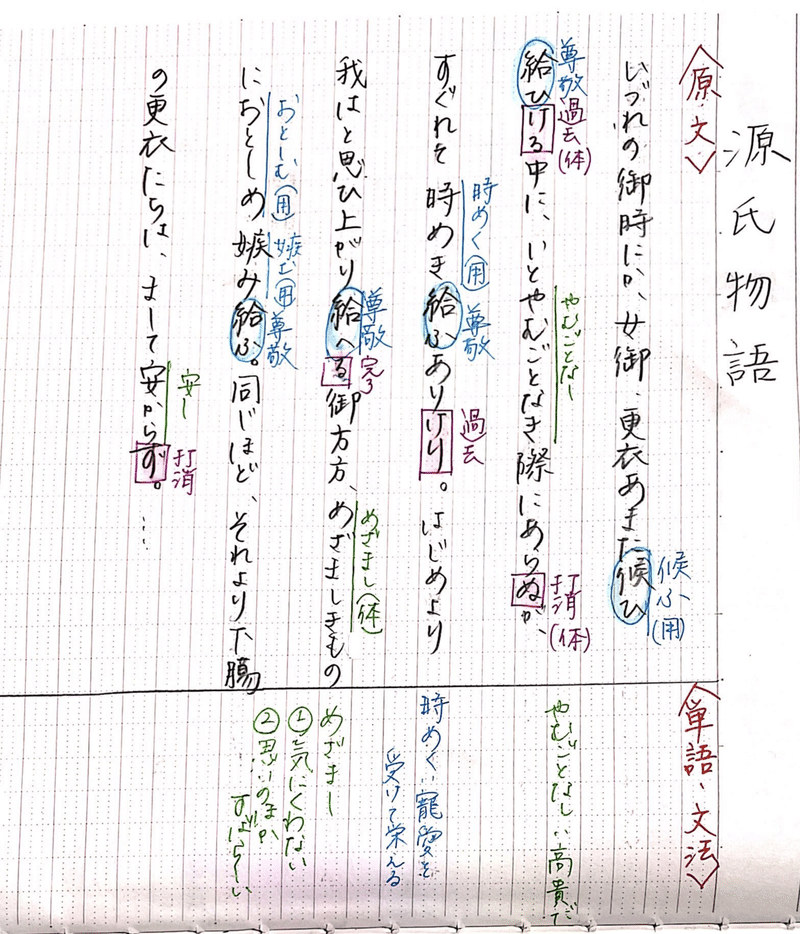 源氏物語
〈原・文〉
いづれの御時にか、女御、更衣あまた候ひ
候ふ(用)
給ひける中に、いとやむごとなき際にあらぬが、
尊敬
過去(体)
やむごとなし
打消(体)
すぐれて時めき給ふありけり。はじめより
時めく(用)
尊敬
過去
我はと思ひ上がり給へる御方方、めざましきもの
尊敬
完了
めざまし(体)
におとしめ嫉み給ふ。同じほど、それより下臈
おとしむ(用)
嫉む(用)
尊敬
の更衣たちは、まして安からず。…
安し
打消
〈単語・文法〉
やむごとなし…高貴だ
時めく…寵愛を
受けて栄える
めざまし
①気にくわない
②思いのほか
すばらしい